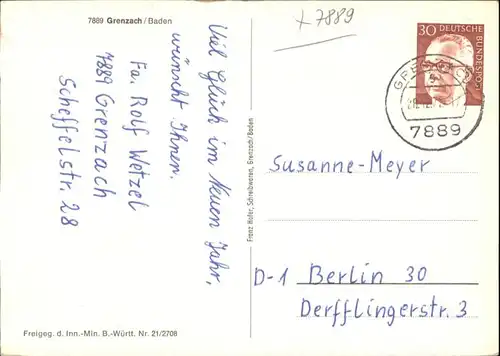 7889 Grenzach/Baden
x 7889
Viel Glück im Neuen Jahr,
wünscht Ihnen.
Fa. Rolf Wetzel
7889 Grenzach
Scheffelstr. 28
Franz Hofer, Schreibwaren, Grenzach/Baden
30 DEUTSCHE
BUNDESPOST
7889
Susanne-Meyer
D-1 Berlin 30
Derfflingerstr. 3
Freigeg. d. Inn.-Min. B.-Württ. Nr. 21/2708